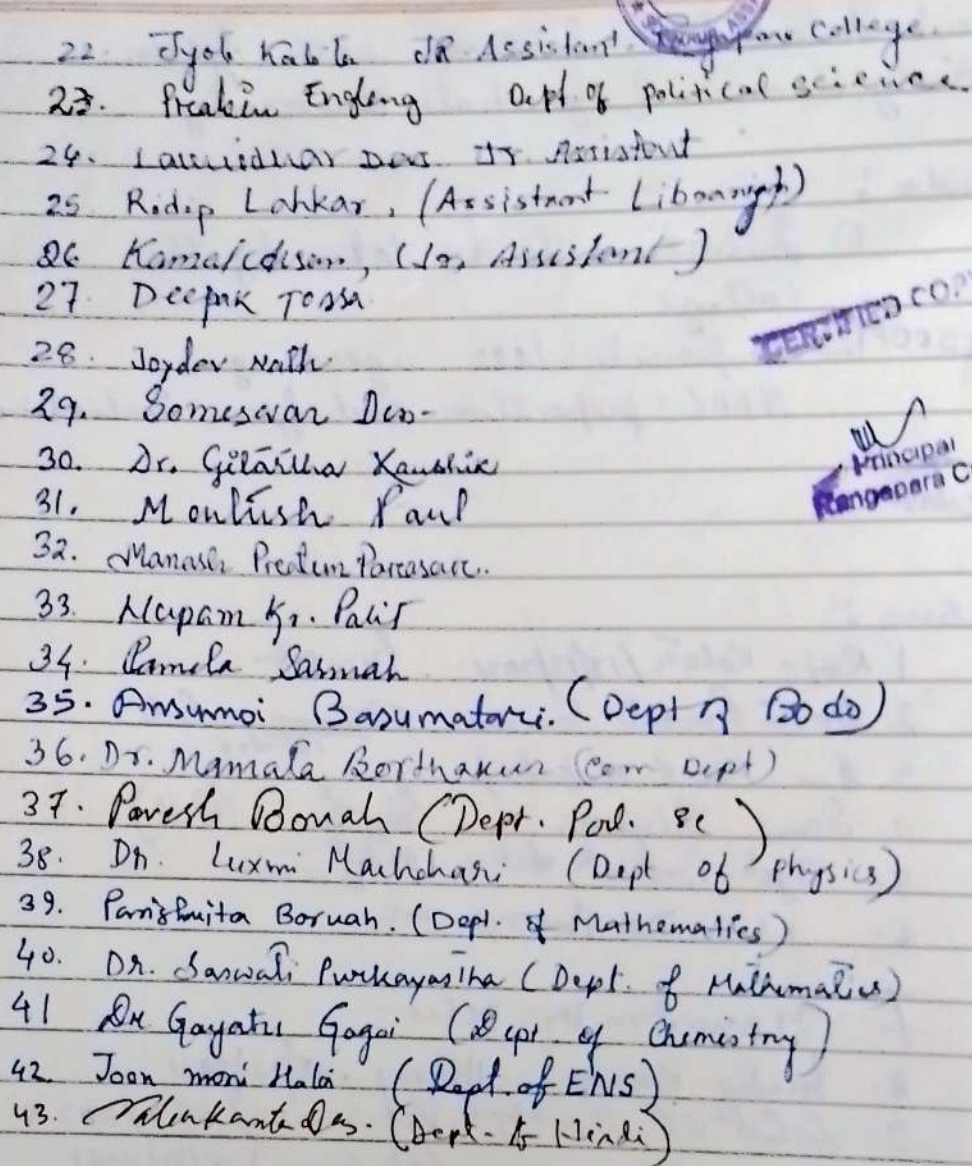 22. Jyoti Kalita JR Assistant Rangapara College.
23. Prabin Engleng Dept of political science.
24. Laxmidhar Das Jr. Assistant
25 Ridip Lahkar, (Assistant Libraarian)
26 (Jr. Assistant)
27. Deepak Tossa
28. Joydev Nath
29. Someswar Das
30. Dr. Gitartha Kaushik
31. Montush Paul
32. Manash Pratim Parasar.
33. Nupam Kr. Palit
34. Pamela Sarmah
35. Ansumoi Basumatari. (Dept of Bodo)
36. Dr. Mamata Borthakur (Com Dept)
37. Paresh Boruah (Dept. Pol. Sc)
38. Dr. Luxmi Machahari (Dept of physics)
39. Parishmita Boruah. (Dept. of Mathematics)
40. Dr. Saswati Purkayastha (Dept. of Mathematics)
41 Dr Gayatri Gogoi (Dept of Chemistry)
42. Joon moni Haloi (Dept. of ENS)
43. Das. (Dept. of Hindi)
CERTIFIED COPY
Principal
Rangapara